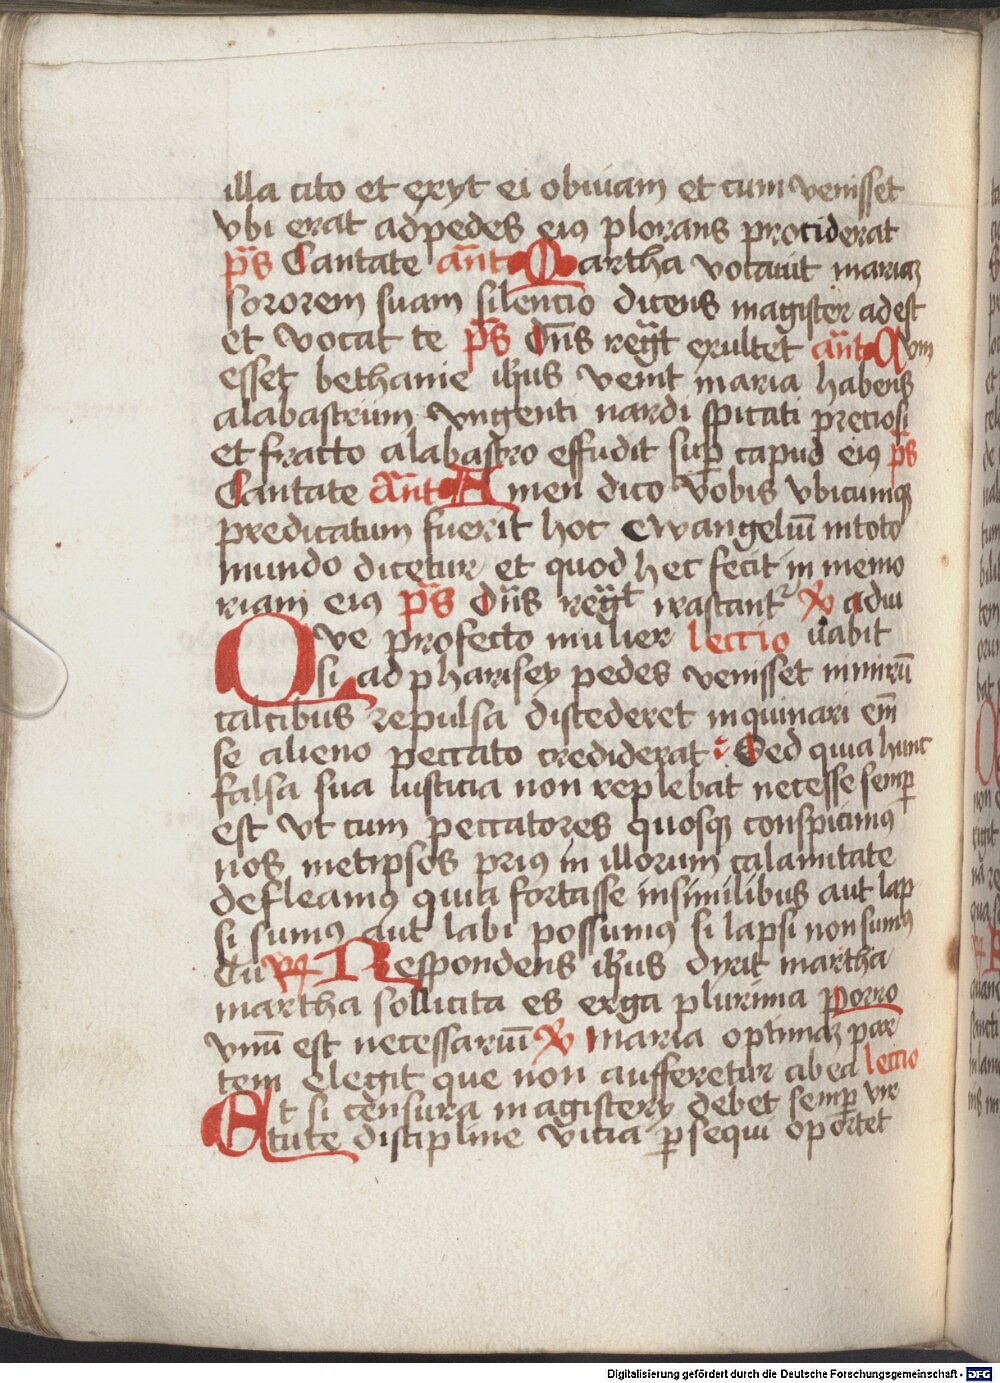 illa cito et exyt ei obiuiam et cum venisset
vbi erat ad pedes eiꝯ plorans prociderat
p̄s Cantate an̄t Martha vocauit mariaꝫ
sororem suam silencio dicens magister adest
et vocat te p̄s Dn̄s regt exultet an̄t Cum
esset bethanie ih̄us venit maria habens
alabastrum vngenti nardi spicati preciosi
et fracto alabastro effudit suꝑ capud eiꝯ p̄s
Cantate An̄t Amen dico vobis vbicumqꝫ
predicatum fuerit hoc ewangeliū in toto
mundo dicetur et quod hec fecit in memo
riam eiꝯ p̄s Dn̄s regt irascant℣ adiu
Que profecto mulier lectio uabit
si ad pharisey pedes venisset nimirū
calcibus repulsa discederet inquinari em̄
se alieno peccato crediderat Sed quia hunc
falsa sua iusticia non replebat necesse semꝑ
est vt cum peccatores quosqꝫ conspicimꝯ
nos metipsos priꝯ in illorum calamitate
defleamꝯ quia fortasse in similibus aut lap
si sumꝯ aut labi possumꝯ si lapsi non sumꝯ
Tu Respondens ih̄us dyxit martha
martha sollicita es erga plurima Porro
vnū est necessariū ℣ Maria optimaꝫ par
tem elegit que non aufferetur ab ea lectio
Et si censura magistery debet semꝑ vir
tute discipline vicia ꝑsequi oportet
Digitalisierung gefördert durch die Deutsche Forschungsgemeinschaft - DFG